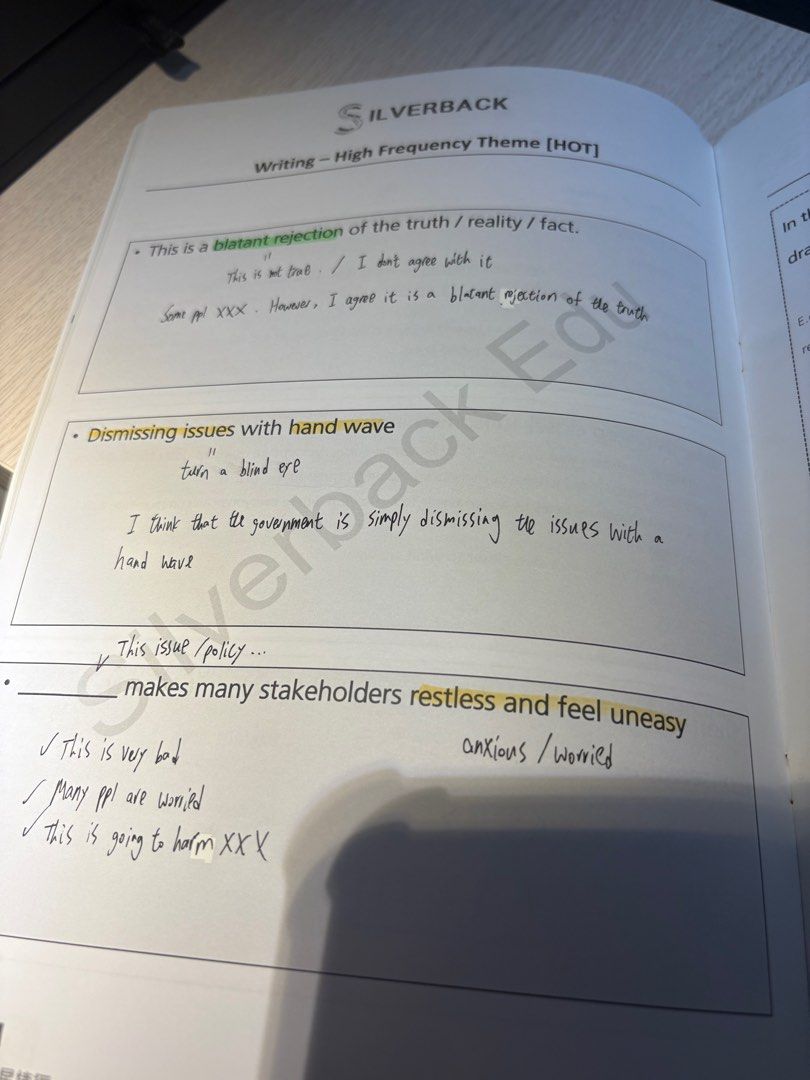 SILVERBACK
Writing – High Frequency Theme [HOT]
• This is a blatant rejection of the truth / reality / fact.
"
This is not true. / I don't agree with it
Some ppl XXX. However, I agree it is a blatant rejection of the truth
• Dismissing issues with hand wave
"
turn a blind eye
I think that the government is simply dismissing the issues with a
hand wave
This issue /policy...
• ________ makes many stakeholders restless and feel uneasy
anxious / worried
✓ This is very bad
✓ Many ppl are worried
✓ This is going to harm XXX
Silverback Edu
In th
dra
E.
re